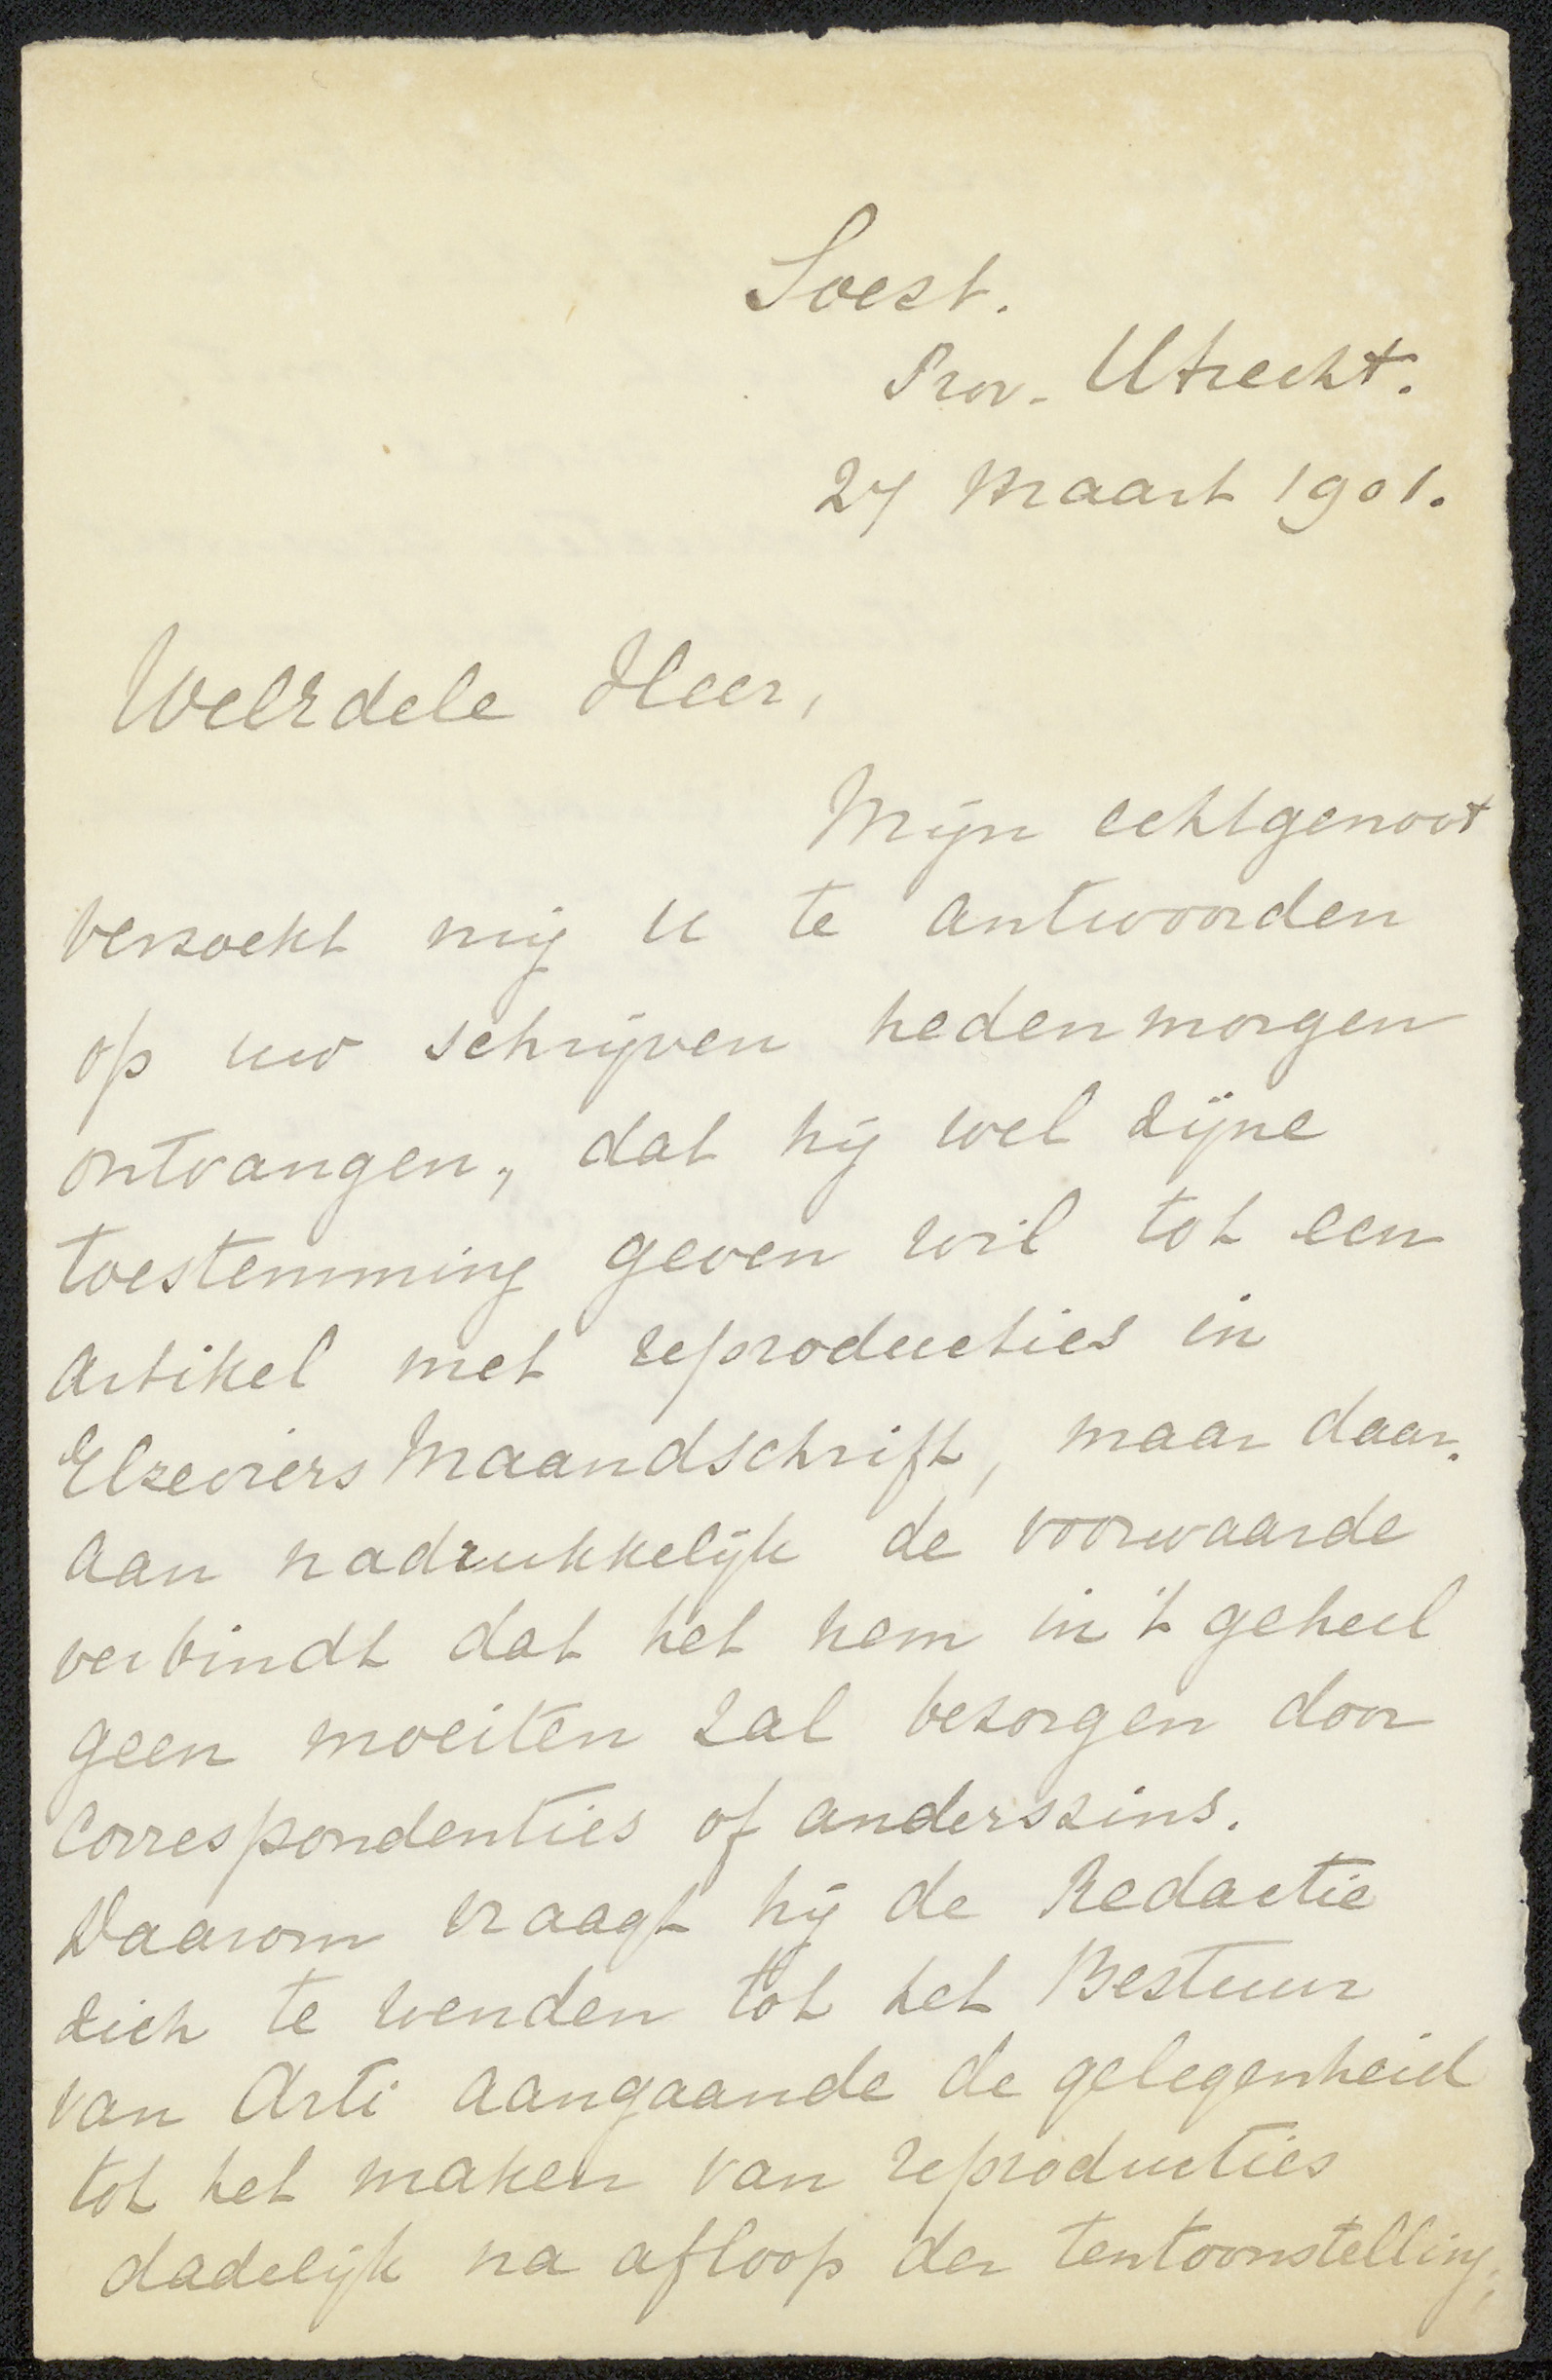 Soest.
Prov. Utrecht.
27 Maart 1901.
WelEdele Heer,
Mijn echtgenoot
verzoekt mij U te antwoorden
op uw schrijven hedenmorgen
ontvangen, dat hij wel zijne
toestemming geven wil tot een
artikel met reproducties in
Elzeviers Maandschrift, maar daar-
aan nadrukkelijk de voorwaarde
verbindt dat het hem in 't geheel
geen moeiten zal bezorgen door
correspondenties of anderszins.
Daarom vraagt hij de Redactie
zich te wenden tot het Bestuur
van Arti aangaande de gelegenheid
tot het maken van reproducties
dadelijk na afloop der tentoonstelling;